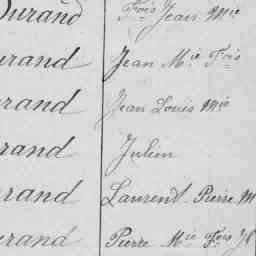 Durand Fois Jean Mie
urand Jean Mie Fois
rand Jean Louis Mie
rand Julien
rand Laurent Pierre M
erand Pierre Mie Fois